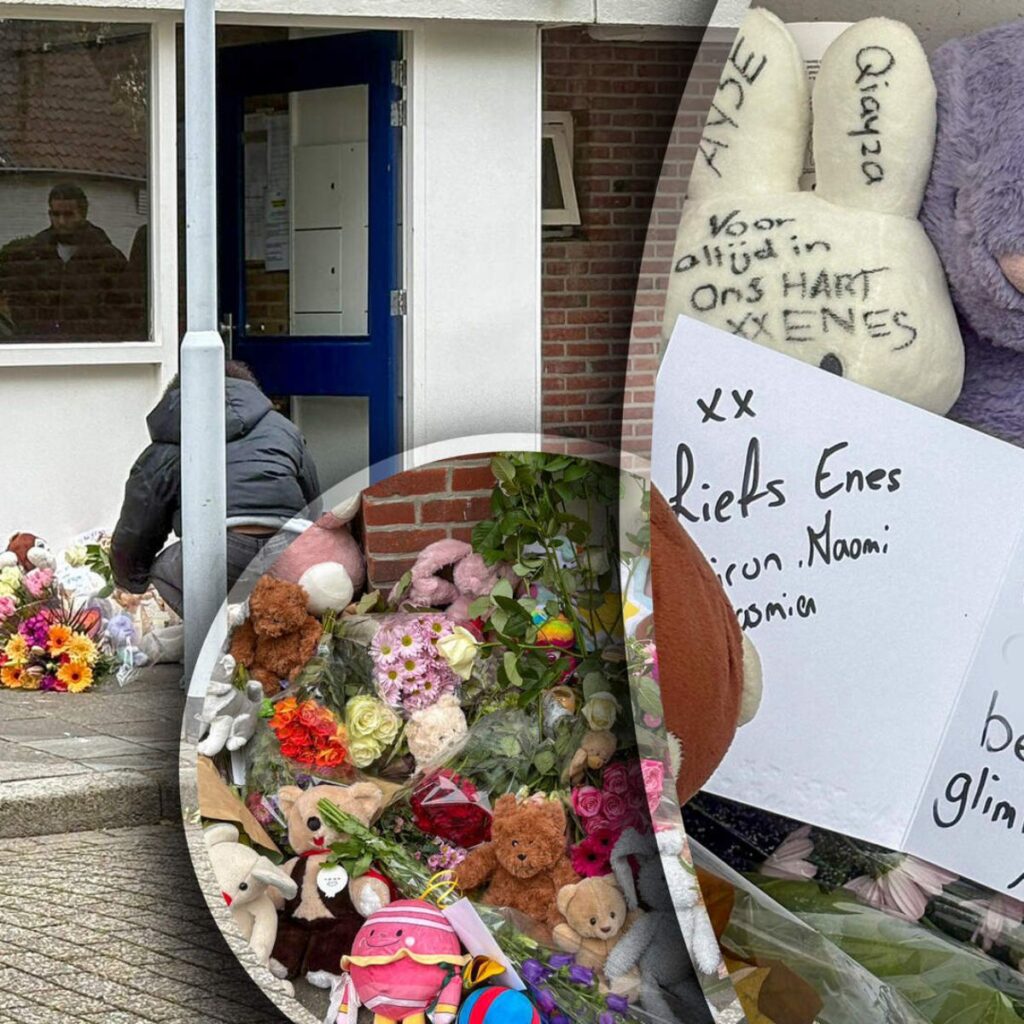 AYSE
Qiayza
Voor
altijd in
Ons HART
xx ENES
xx
Liefs Enes
Naomi
glim